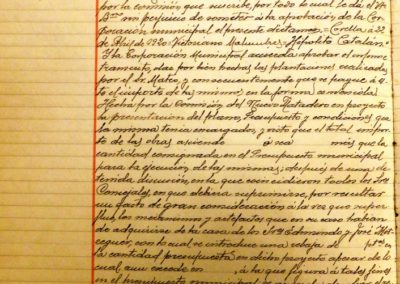 por la comisión que suscribe, por todo lo cual le da el Vº
Bno sin perjuicio de someter a la aprobación de la Cor-
poración municipal el presente dictamen = Corella a 22
de Abril de 1920 = Victoriano Malumbres = Hipólito Catalán.
Y la Corporación Municipal acuerda aprobar el informe
transcrito, dar por bien hechas las plantaciones realizadas
por el Sr. Mateo, y consecuentemente que se pague a és-
te el importe de las mismas, en la forma
Hecha por la comisión del Nuevo Matadero en proyecto
la presentación del plano, Presupuesto y condiciones que
la misma tenía encargados, y visto que el total impor-
te de las obras asciende a más que la
cantidad consignada en el Presupuesto municipal
para la ejecución de las mismas; después de una de-
tenida discusión, en la que coincidieron todos los Sres
Concejales, en que debiera suprimirse, por resultar
un gasto de gran consideración a la vez que super-
fluo, los mecanismos y artefactos que en su caso habían
de adquirirse de la casa de los Sres Edmundo y José
con lo cual se introduce una rebaja de pts en
la cantidad presupuesta en dicho proyecto apesar de lo
cual aun excede en , a la que figura a tales fines
en el presupuesto municipal